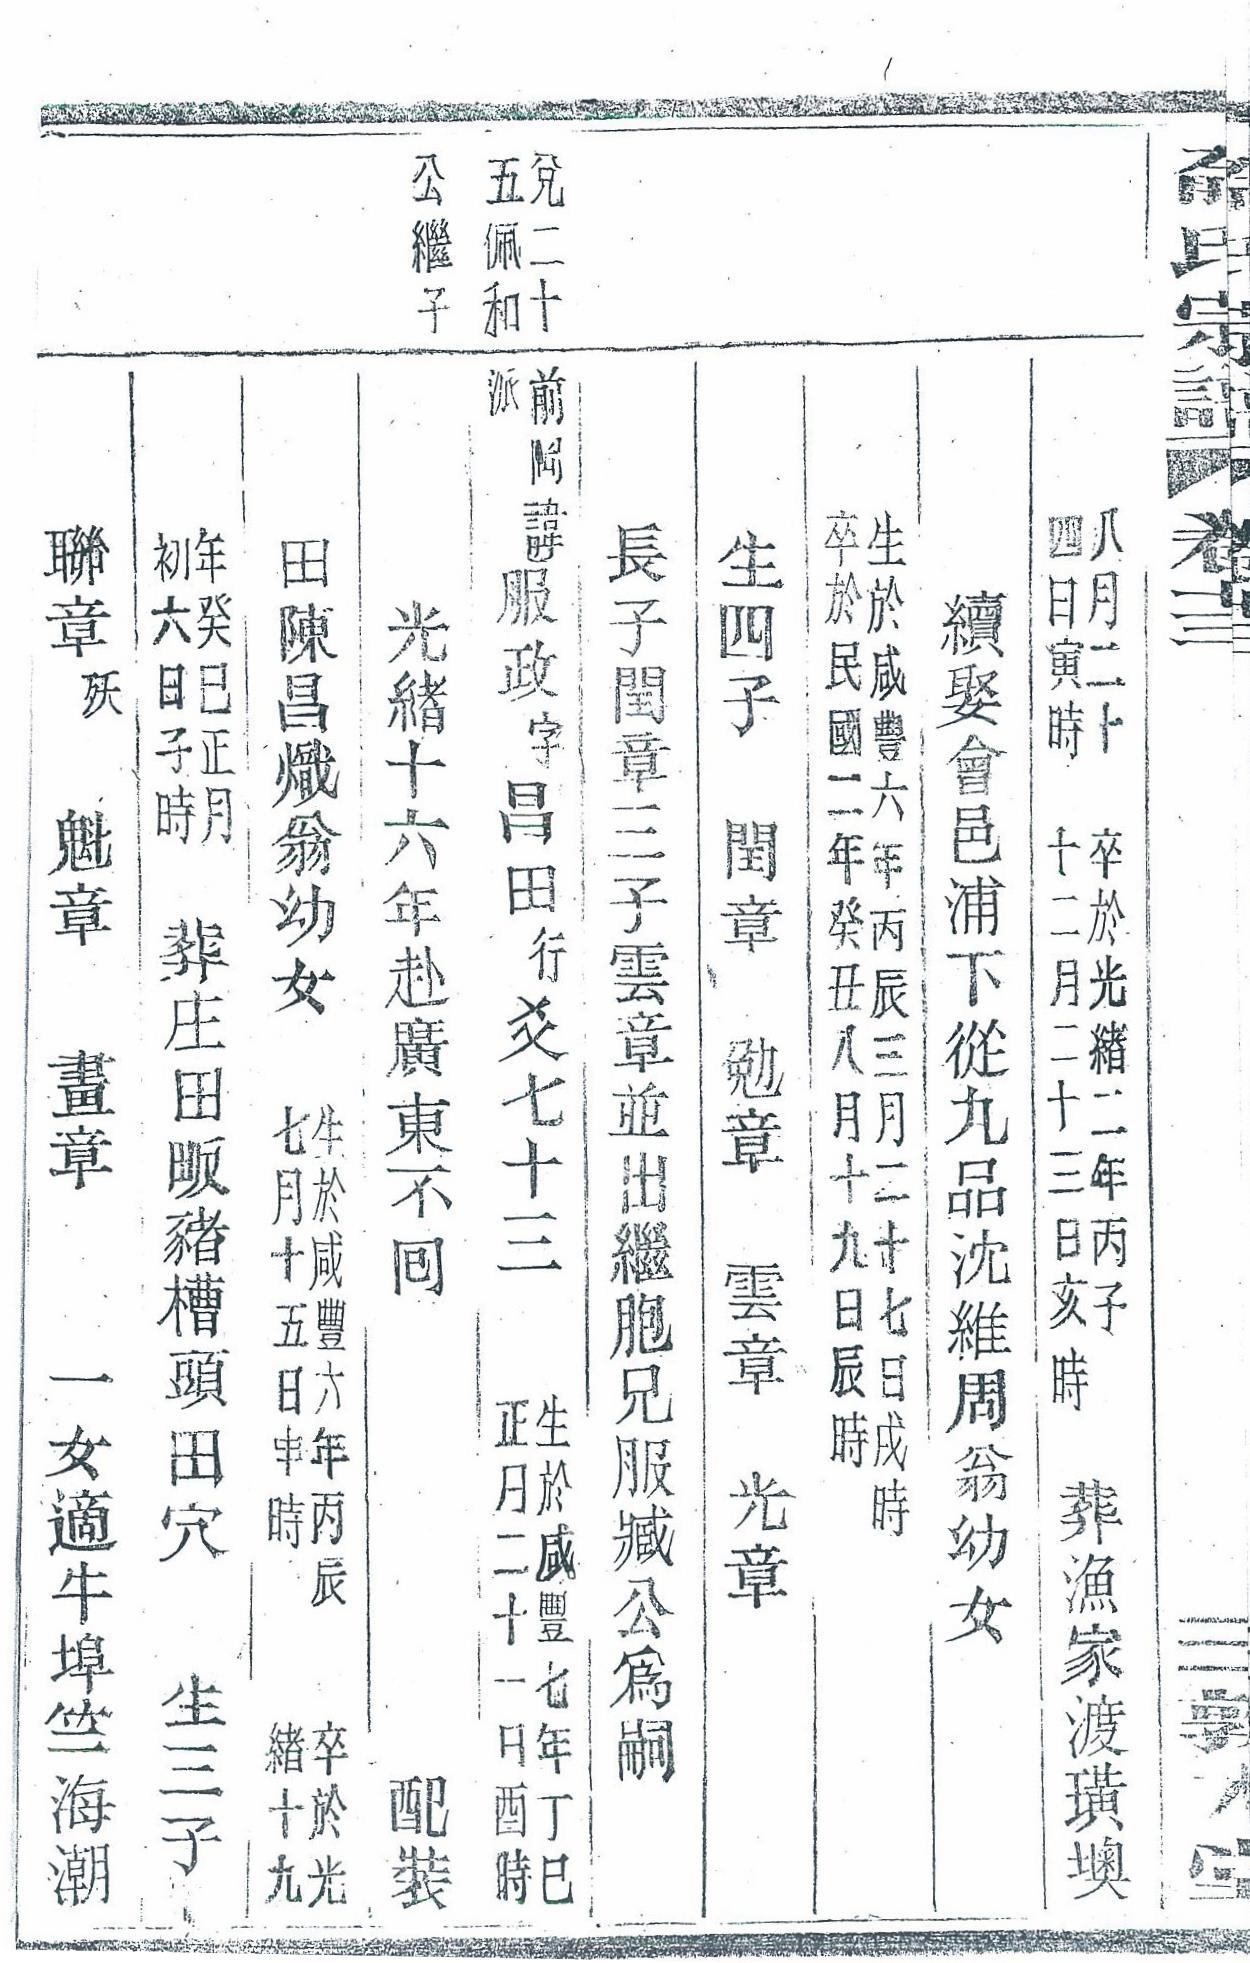 氏宗譜 卷三
八月二十
四日寅時
卒於光緒二年丙子
十二月二十三日亥時
葬漁家渡璜墺
續娶會邑浦下從九品沈維周翁幼女
生於咸豐六年丙辰三月二十七日戌時
卒於民國二年癸丑八月十九日辰時
生四子 閏章 勉章 雲章 光章
長子閏章三子雲章並出繼胞兄服臧公爲嗣
兌二十
五佩和
公繼子
前岡
派
諱服政字昌田行爻七十三
生於咸豐七年丁巳
正月二十一日酉時
光緒十六年赴廣東不回 配裝
田陳昌熾翁幼女
生於咸豐六年丙辰
七月十五日申時
卒於光
緒十九
年癸巳正月
初六日子時
葬庄田畈豬槽頭田穴 生三子
聯章殀 魁章 畫章 一女適牛埠竺海潮